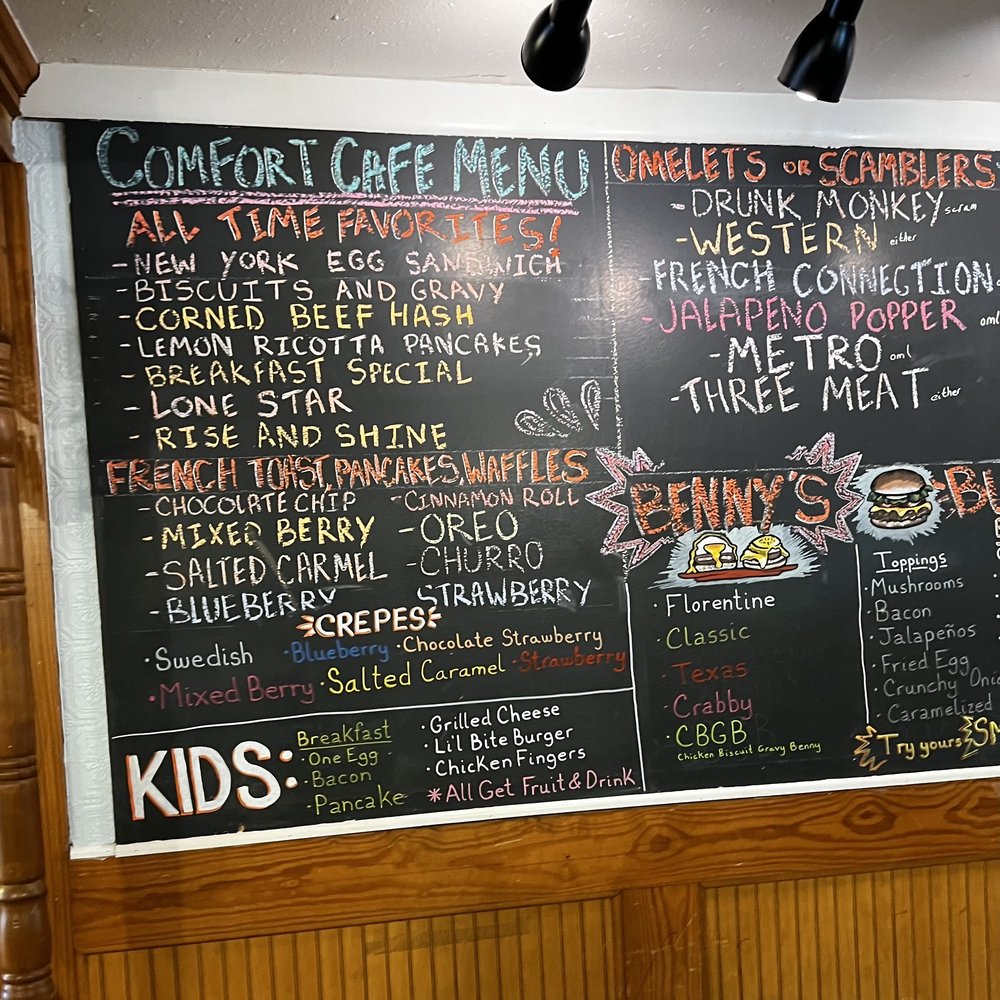 COMFORT CAFE MENU
ALL TIME FAVORITES!
- NEW YORK EGG SANDWICH
- BISCUITS AND GRAVY
- CORNED BEEF HASH
- LEMON RICOTTA PANCAKES
- BREAKFAST SPECIAL
- LONE STAR
- RISE AND SHINE
FRENCH TOAST, PANCAKES, WAFFLES
- CHOCOLATE CHIP
- MIXED BERRY
- SALTED CARMEL
- BLUEBERRY
- CINNAMON ROLL
- OREO
- CHURRO
STRAWBERRY
CREPES
· Swedish
· Blueberry
· Chocolate Strawberry
· Mixed Berry
· Salted Caramel
· Strawberry
KIDS:
Breakfast
· One Egg
· Bacon
· Pancake
· Grilled Cheese
· Li'l Bite Burger
· Chicken Fingers
* All Get Fruit & Drink
OMELETS OR SCAMBLERS
- DRUNK MONKEY scram
- WESTERN either
- FRENCH CONNECTION
- JALAPENO POPPER oml
- METRO oml
- THREE MEAT either
BENNY'S
· Florentine
· Classic
· Texas
· Crabby
· CBGB
Chicken Biscuit Gravy Benny
Toppings
· Mushrooms
· Bacon
· Jalapeños
· Fried Egg
· Crunchy
· Caramelized
Try yours